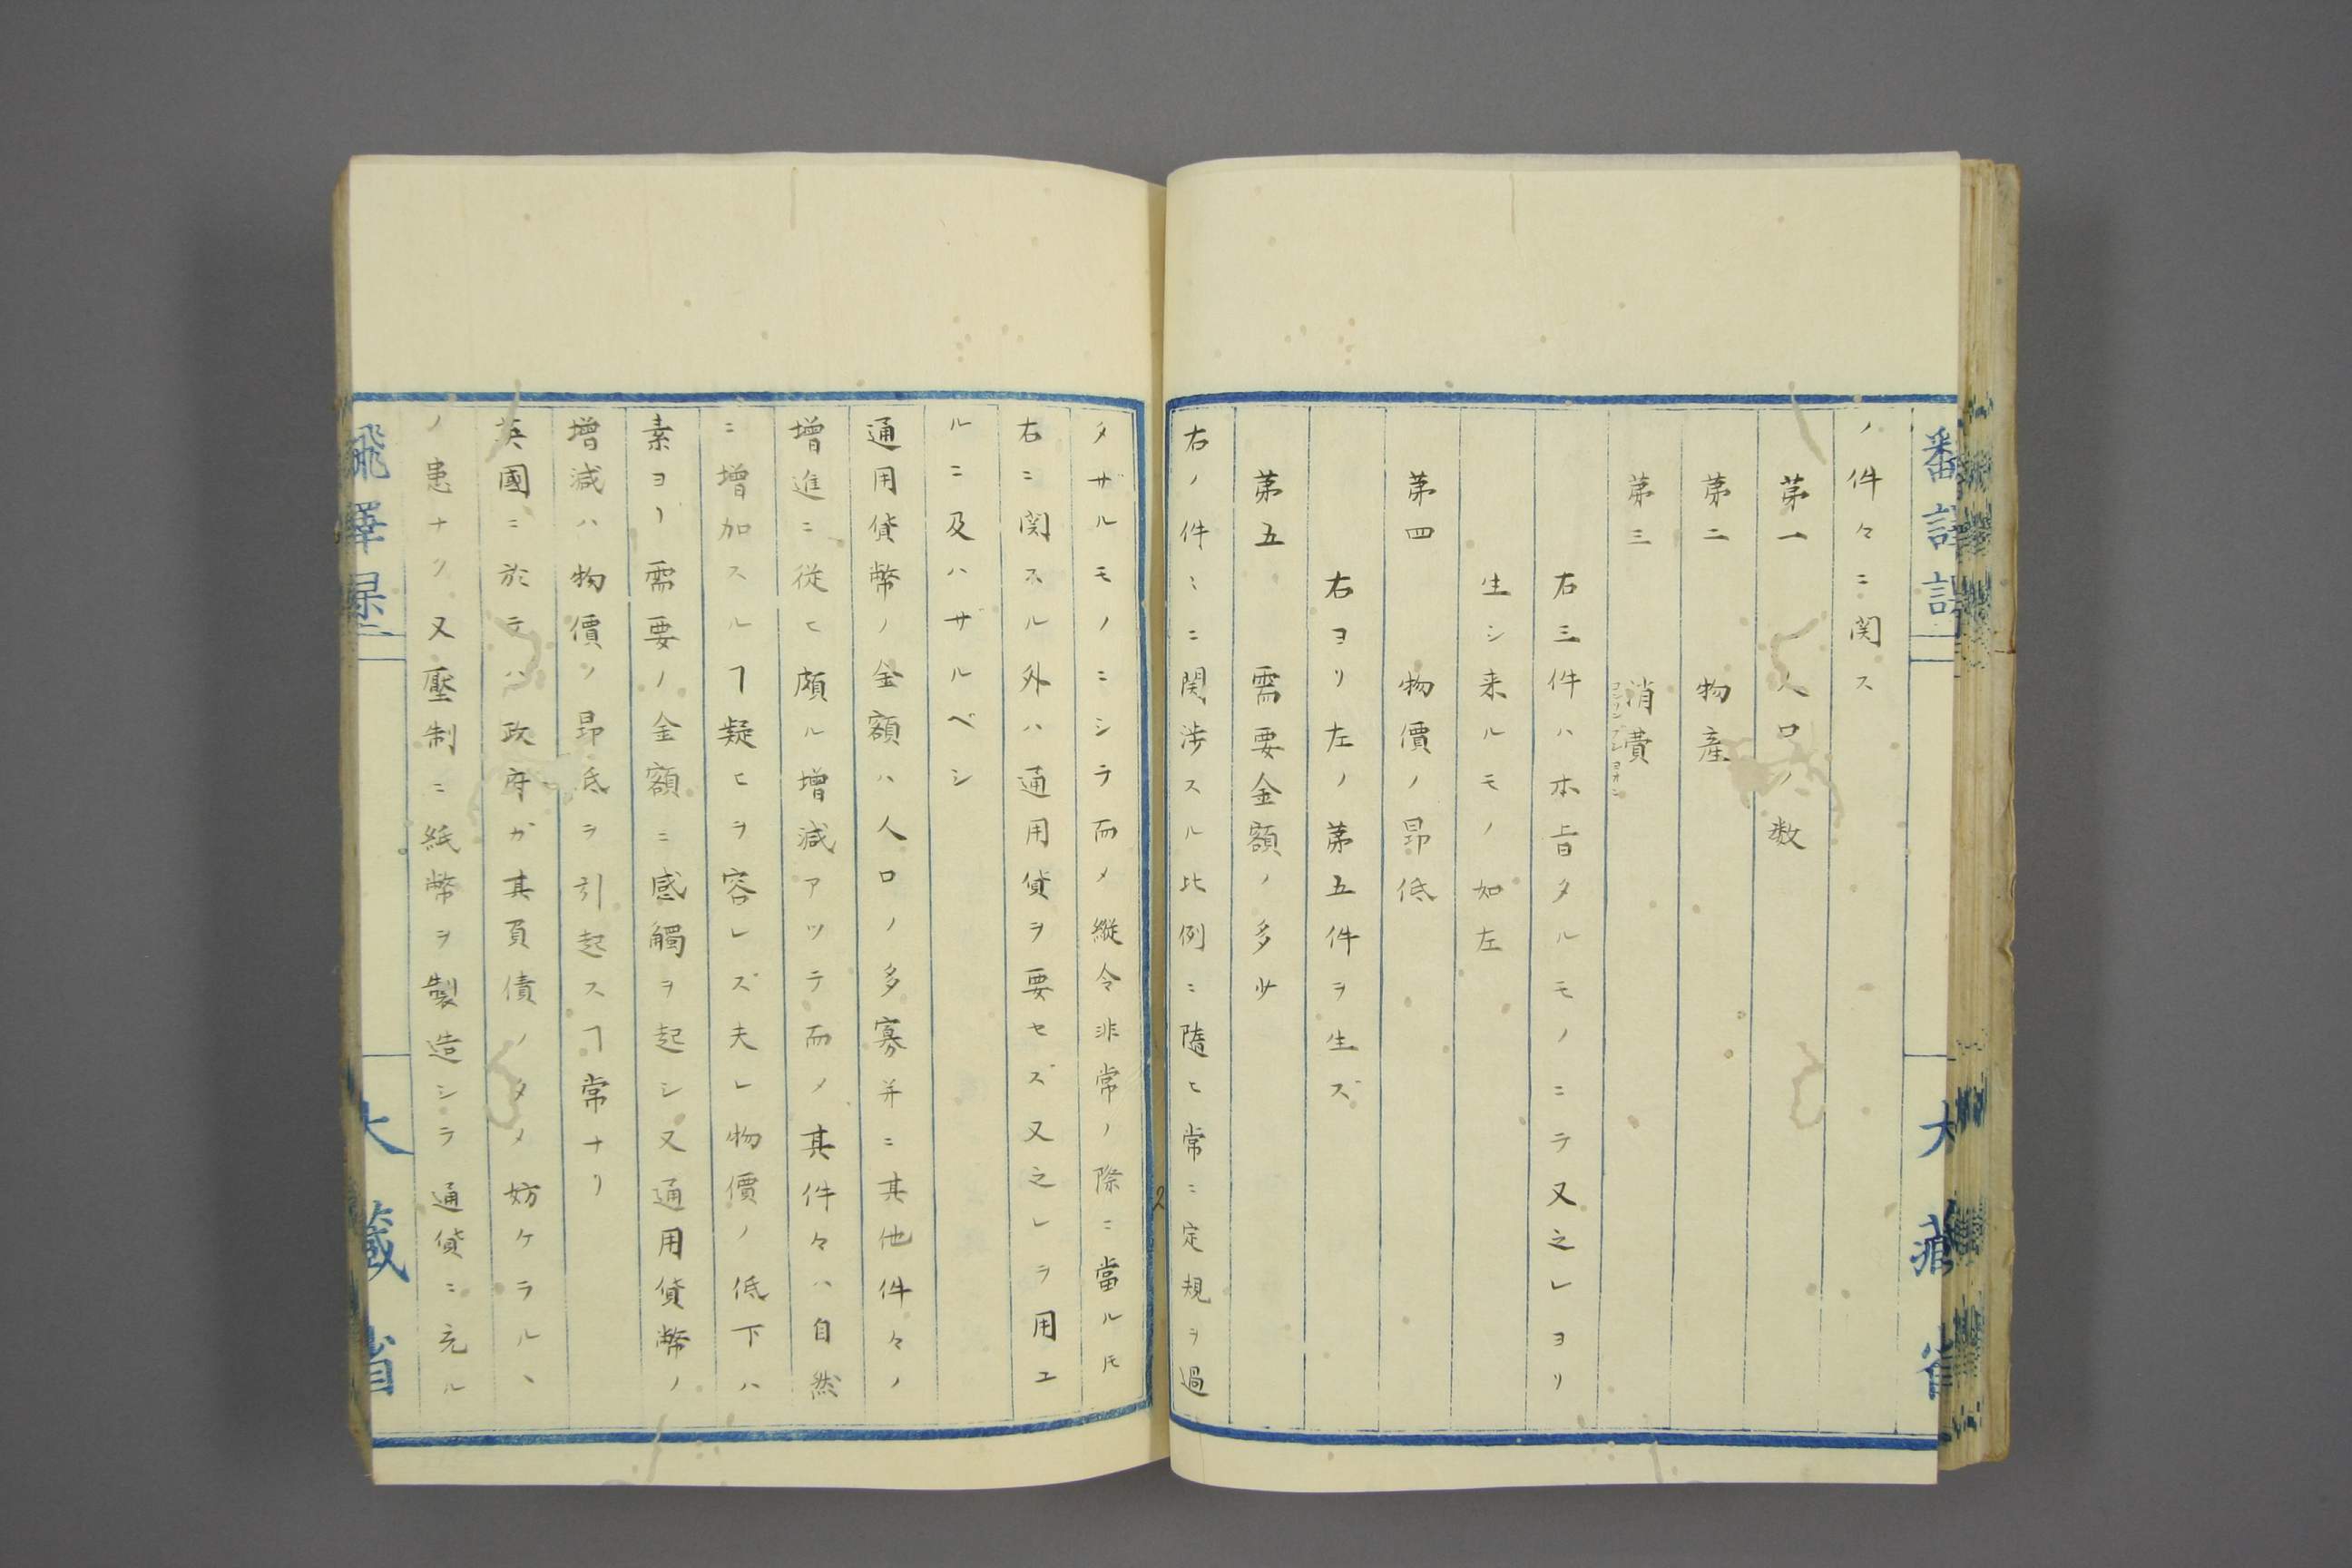 ノ件々ニ関ス
第一 人口ノ数
第二 物産
第三 消費
コンソンプシヨオン
右三件ハ本旨タルモノニテ又之レヨリ
生シ来ルモノ如左
第四 物價ノ昂低
右ヨリ左ノ第五件ヲ生ズ
第五 需要金額ノ多少
右ノ件〻ニ関渉スル比例ニ随ヒ常ニ定規ヲ過
タザルモノニシテ而メ縦令非常ノ際ニ當ルモ
右ニ関スル外ハ通用貨ヲ要セズ又之レヲ用エ
ルニ及ハザルベシ
通用貨幣ノ金額ハ人口ノ多寡并ニ其他件々ノ
増進ニ従ヒ頗ル増減アツテ而メ其件々ハ自然
ニ増加スルヿ疑ヒヲ容レズ夫レ物價ノ低下ハ
素ヨリ需要ノ金額ニ感觸ヲ起シ又通用貨幣ノ
増減ハ物價ノ昂低ヲ引起スヿ常ナリ
英國ニ於テハ政府ガ其負債ノタメ妨ケラルヽ
ノ患ナク又壓制ニ紙幣ヲ製造シテ通貨ニ充ル
大藏省
大藏省
2